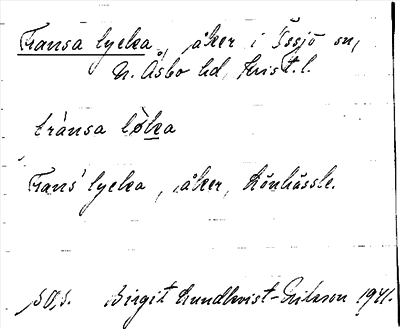 Fransa lycka, åker i Össjö sn,
N. Åsbo hd, Krist. l.
fránsa lø̀ka
Frans' lycka, åker, Lönhässle.
Birgit Lundkvist-Erikson 1941.